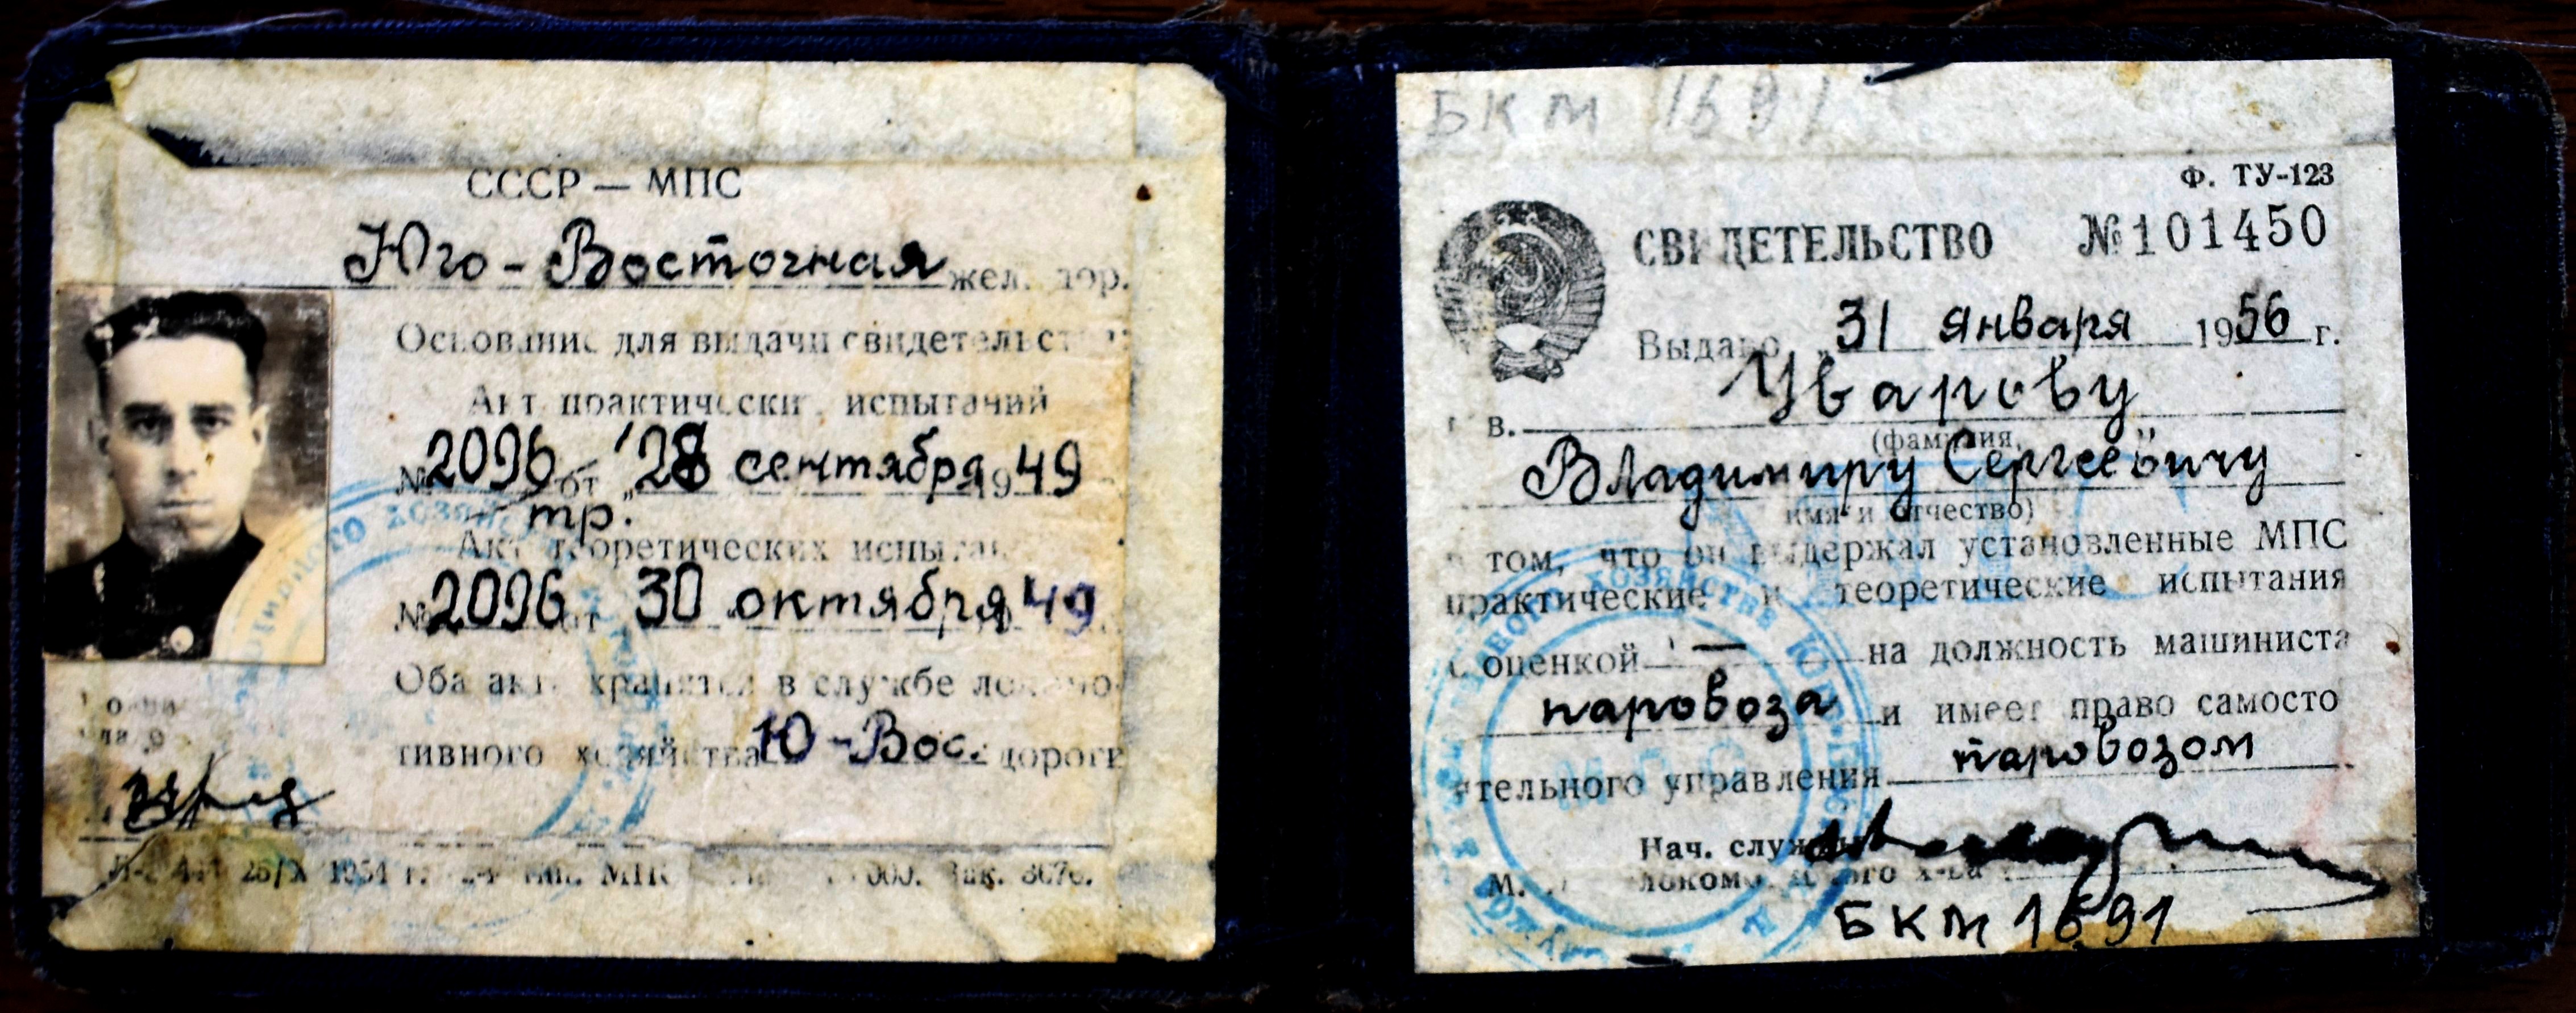 СССР — МПС
Юго-Восточная жел. дор.
Основание для выдачи свидетельства
Акт практических испытаний
№ 2096 от „28 сентября 1949
тр.
Акт теоретических испытаний
№ 2096 от 30 октября 1949
Оба акта хранятся в службе локомо-
тивного хозяйства Ю-Вос. дороги
26/X 1954 г. тип. МПС Зак. 3676.
БКМ 1691
Ф. ТУ-123
СВИДЕТЕЛЬСТВО №101450
Выдано „31 января 1956 г.
т в. Уварову
(фамилия,
Владимиру Сергеевичу
имя и отчество)
в том, что он выдержал установленные МПС
практические и теоретические испытания
с оценкой — на должность машиниста
паровоза и имеет право самосто
ятельного управления паровозом
Нач. службы
М. локомотивного х-ва
БКМ 1691